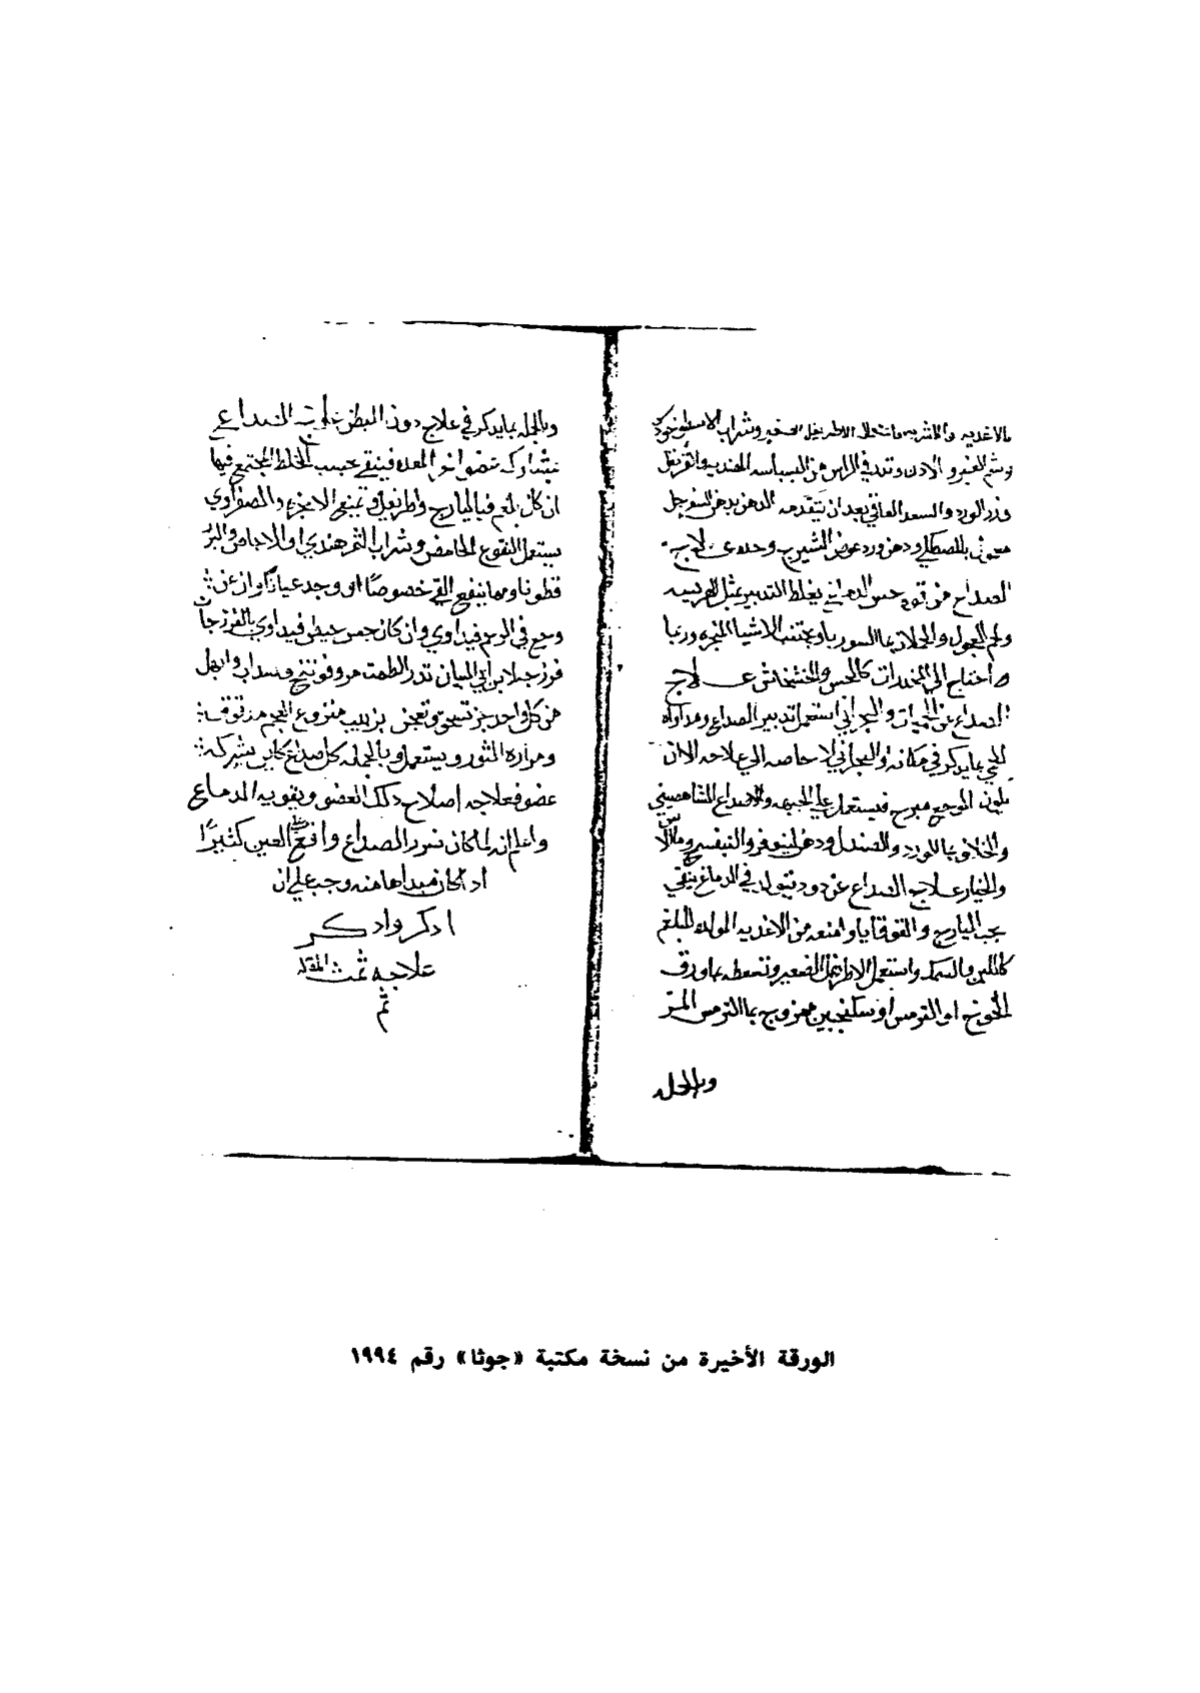 بالاغذيه والاشربه الاطريفل الصغير وشراب الاسطوخودس
وشم العنبر و الادن وتدفي الراس من البسباسه الهنديه والقرنفل
وزر الورد والسعد بعد ان يتقدمه الدهن بدهن السفرجل
بالمصطكي ودهن ورد عوض الشيرج وحده علاج
الصداع من قوه حس الدماغ يغلظ التدبير بمثل الهريسه
ولحم العجول ويجتنب الاشيا المبخره وربما
احتاج الي المخدرات كالخس والخشخاش علاج
الصداع عن الحميات والبحراني استعمل تدبير الصداع ومداواه
الحمي بما يذكر في مكانه والبحراني لا حاجه الي علاجه الا ان
يكون الوجع مبرح فيستعمل علي الجبهه والاصداغ
والخلاف بماالورد والصندل ودهن لينوفر والبنفسج وماالاس
والخيار علاج الصداع عن دود يتولد في الدماغ ينقي
بحب اليارج والقوقايا وامنعه من الاغذيه المولده البلغم
كاللبن والسمك واستعمل الاطريفل الصغير وتسعطه بما ورق
الخوخ او الترمس او سكنجبين ممزوج بماالترمس المر
وبالجمله
وبالجمله بما يذكر في علاج دود البطن علاج الصداع
بمشاركه عضو اخر المعده فينقي بحسب الخلط المجتمع فيها
ان كان بلغم فباليارج واطريفل وتمنع الابخره والصفراوي
يستعمل النقوع الحامض وشراب التمرهندي او الاجاص والبزر
قطونا ومما ينفع القي خصوصًا ان وجد غثيانا وان عن
وجع في الرحم فيداوي وان كان حبس حيض فيداوي بالفرزجات
فرزجه لابن ابي البيان تدر الطمث مر وفوتنج وسداب وابهل
من كل واحد جز تسحق وتعجن بزبيب منزوع العجم
ومراره الثور ويستعمل وبالجمله كل صداع كاين بشركه
عضو فعلاجه اصلاح ذلك العضو وتقويه الدماغ
واعلم انه لما كان الصداع واقع العين كثيرًا
اذ كان مبداها منه وجب علي ان
اذكر واذكر
علاجه تمت المقاله
تم
الورقة الأخيرة من نسخة مكتبة «جوثا» رقم ١٩٩٤